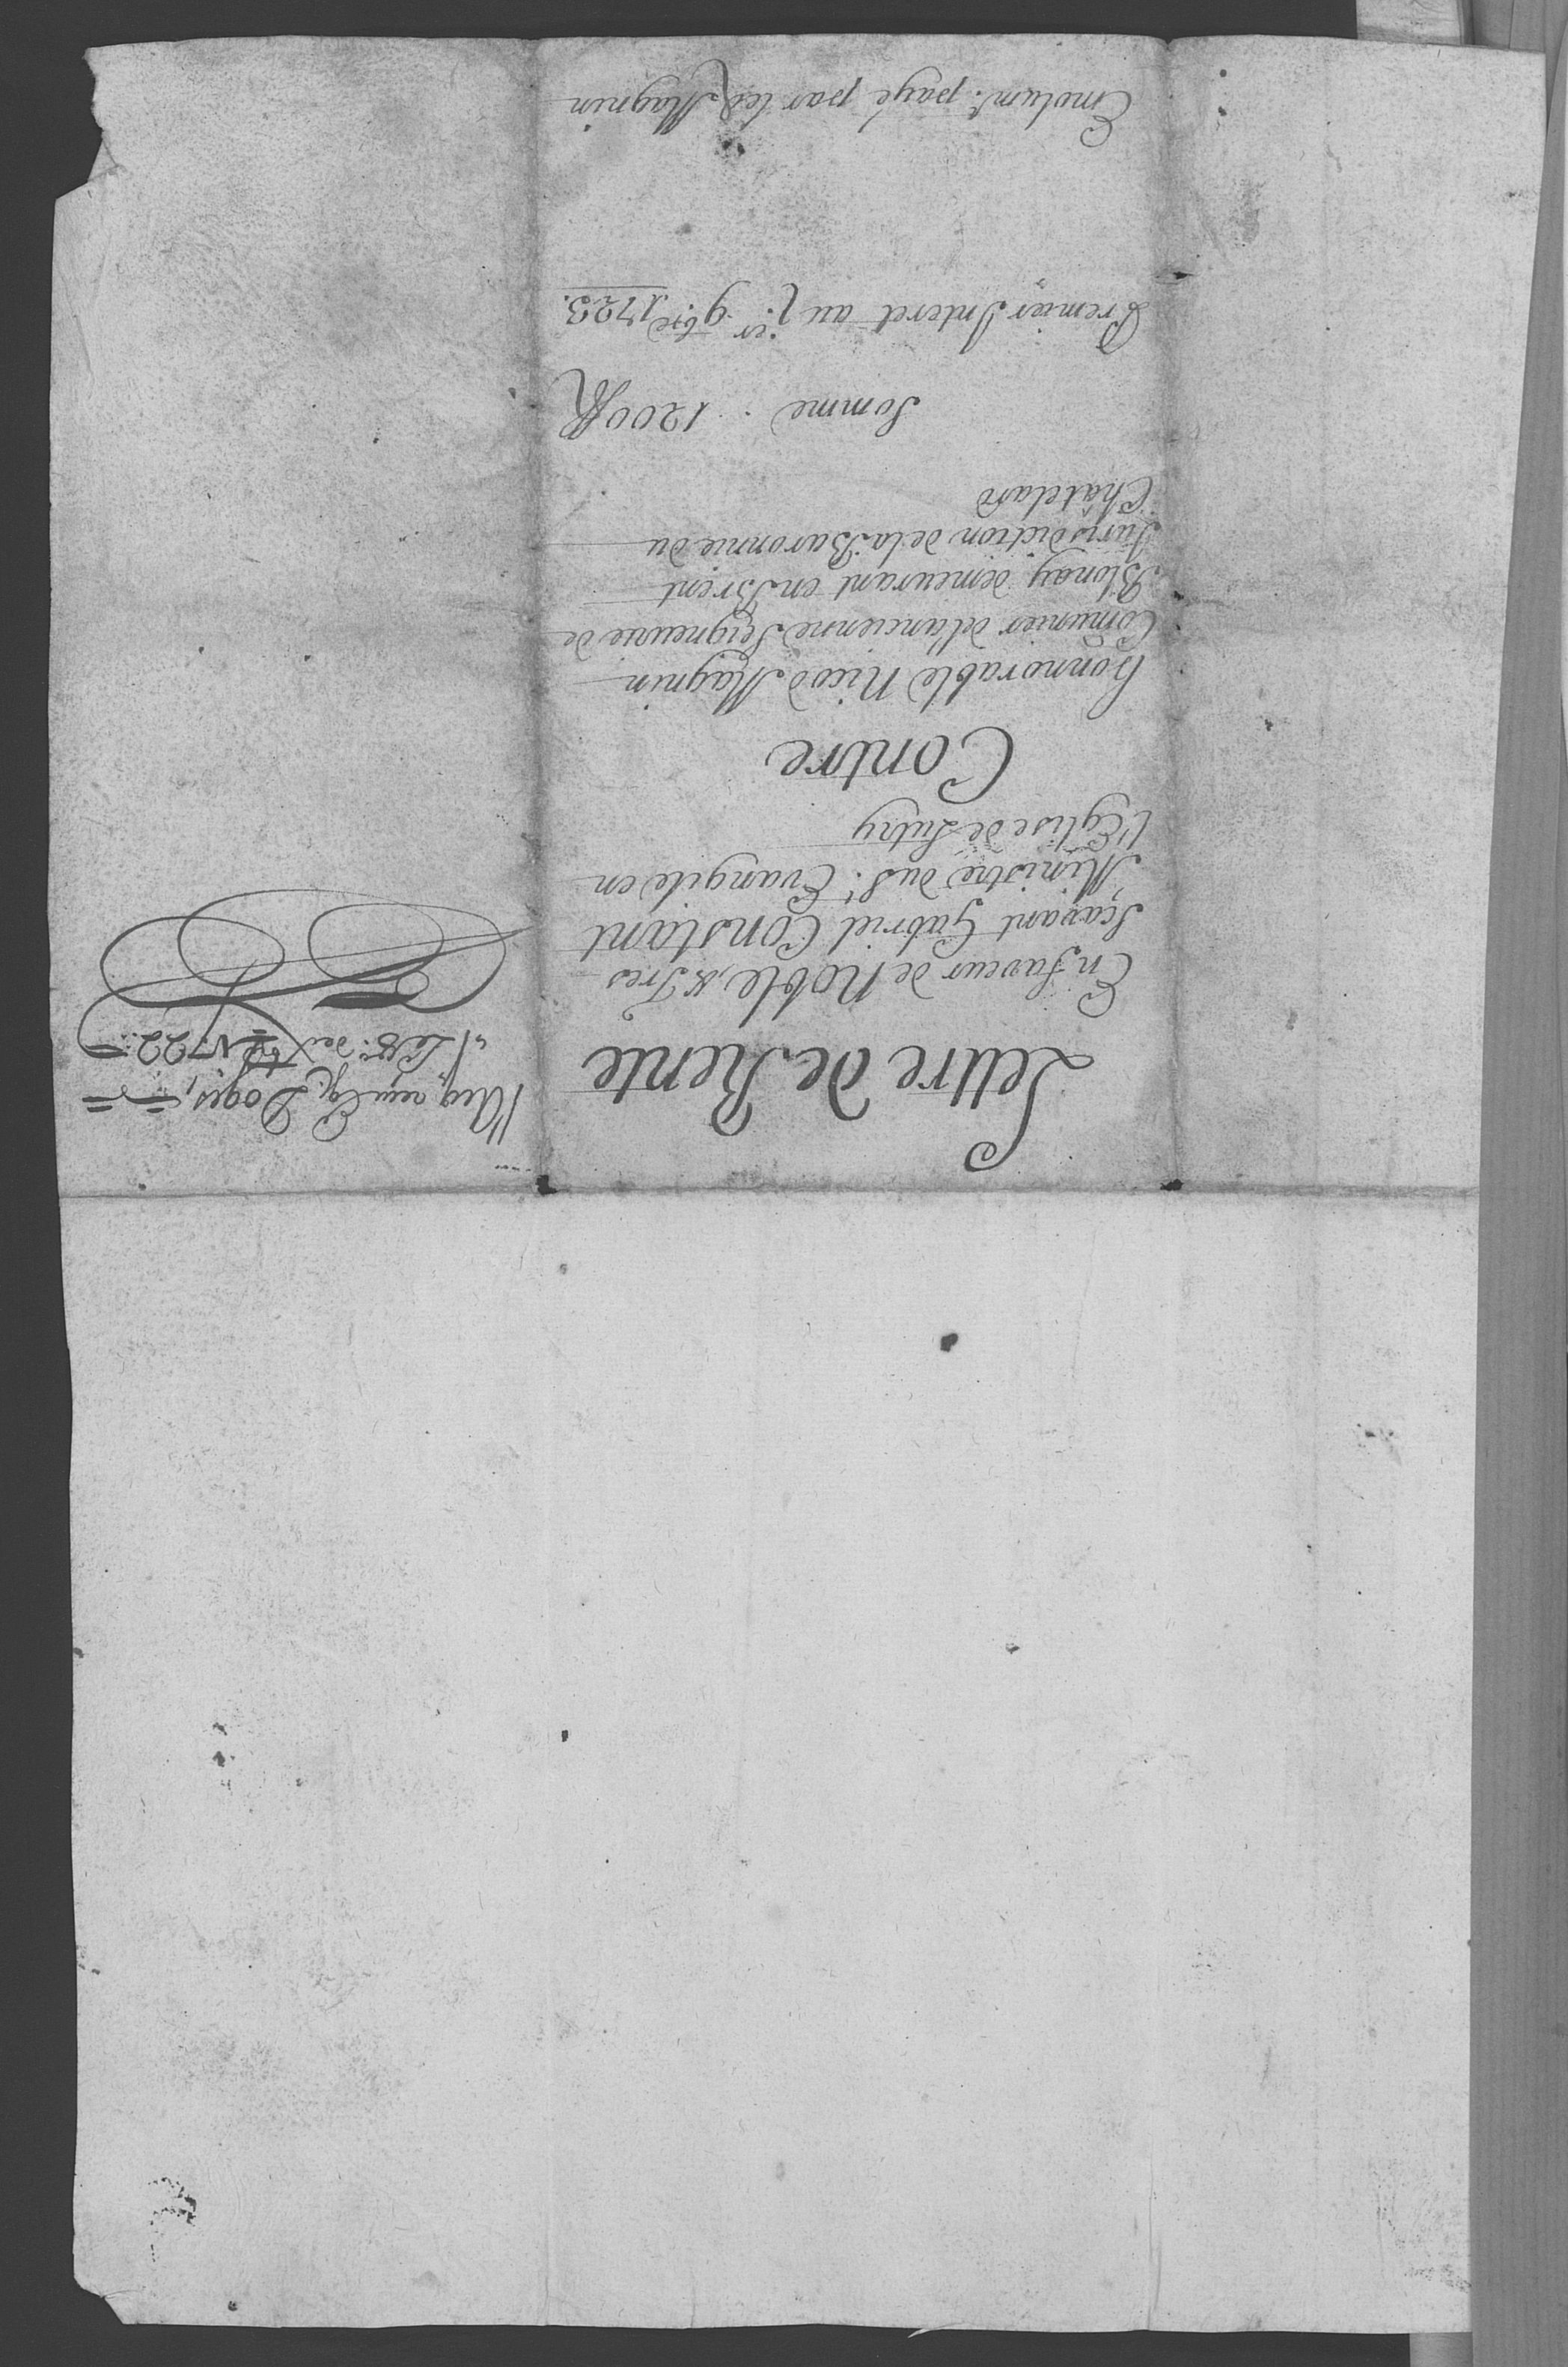 Lettre de Rente
En faveur de Noble, & Tres
Sçavant Gabriel Constant
Ministre du St. Evangile en
l'Eglise de Lutry
Contre
honnorable Nicod Magnin
Comunier del'ancienne Seigneurie de
Blonay demeurant en Brent
Jurisdiction dela Baronnie du
Châtelard
Somme . 1200 ff
Premier Interet au 1.er 9.bre 1723.
Emolumt. payé par led. Magnin
Doges,
1722